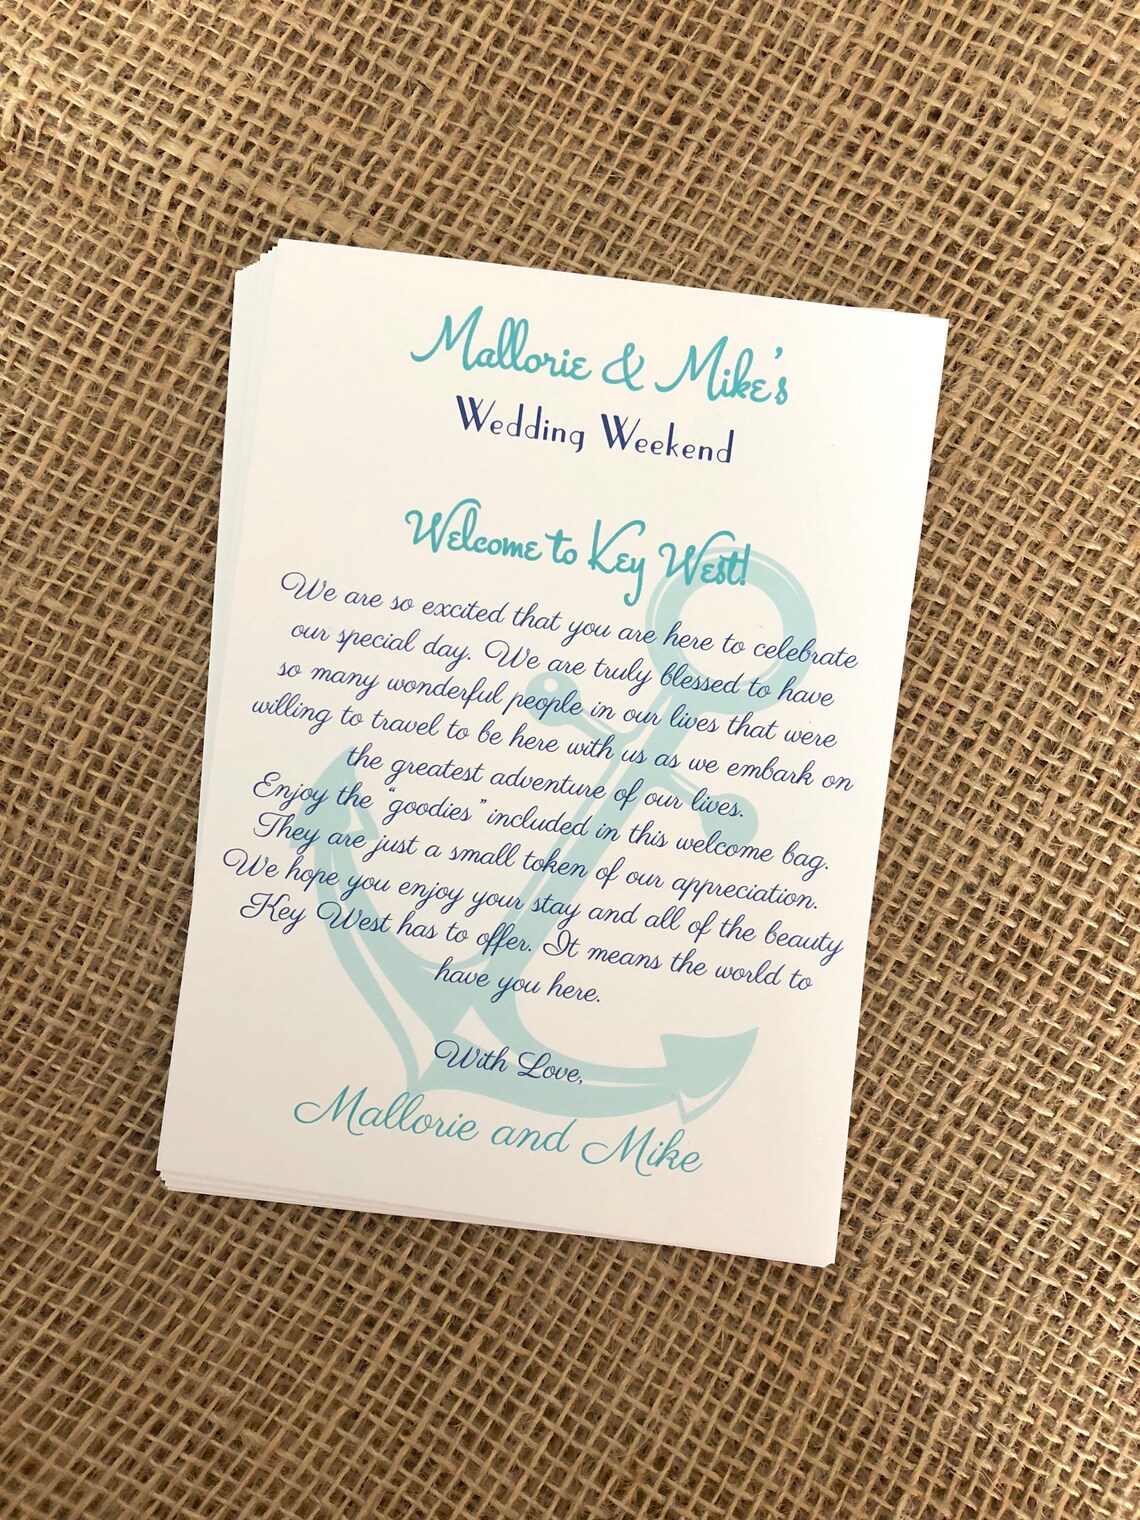 Mallorie & Mike's
Wedding Weekend
Welcome to Key West!
We are so excited that you are here to celebrate
our special day. We are truly blessed to have
so many wonderful people in our lives that were
willing to travel to be here with us as we embark on
the greatest adventure of our lives.
Enjoy the "goodies" included in this welcome bag.
They are just a small token of our appreciation.
We hope you enjoy your stay and all of the beauty
Key West has to offer. It means the world to
have you here.
With Love,
Mallorie and Mike